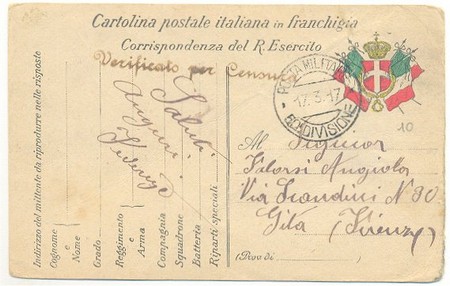 Cartolina postale italiana in franchigia
Corrispondenza del R. Esercito
Verificato per Censura
POSTA MILITARE
17.3.17
DIVISIONE
10
Saluti
Auguri
Indirizzo del mittente da riprodurre nelle risposte
Cognome e Nome
Grado
Reggimento e Arma
Compagnia
Squadrone
Batteria
Riparti speciali
Al Signior
Angiolo
Via N 30
(Firenze)
(Prov. di